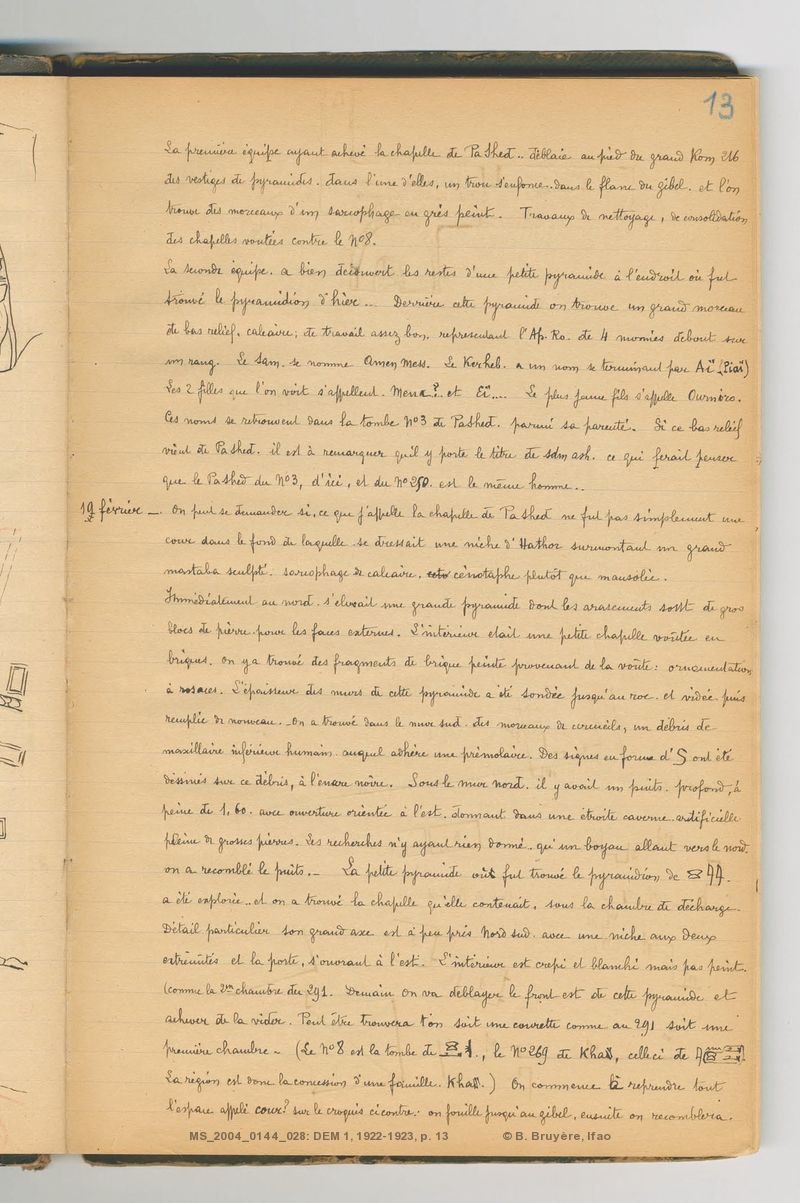 13
La première équipe ayant achevé la chapelle de PaShed.. déblaie au pied du grand Kom 216
des vestiges de pyramides. dans l'une d'elles, un trou s'enfonce dans le flanc du gibel. et l'on
trouve des morceaux d'un sarcophage en grès peint. Travaux de nettoyage, de consolidation
des chapelles voutées contre le N°8.
La seconde équipe. a bien découvert les restes d'une petite pyramide à l'endroit où fut
trouvé le pyramidion d'hier... Derrière cette pyramide on trouve un grand morceau
de bas relief. calcaire; de travail assez bon. représentant l'Ap. Ro. de 4 momies debout sur
un rang. Le Sam. se nomme Amen Mess. Le Kerheb. a un nom se terminant par Aï (Piaï)
Les 2 filles que l'on voit s'appellent. Mena? et Eï.... Le plus jeune fils s'appelle Ournéro.
Ces noms se retrouvent dans la tombe N°3 de PaShed. parmi sa parenté. Si ce bas relief
vient de PaShed. il est à remarquer qu'il y porte le titre de sdm ash. ce qui ferait penser
que le PaShed du N°3, d'ici, et du N°250. est le même homme..
19 février —. On peut se demander si, ce que j'appelle la chapelle de PaShed ne fut pas simplement une
cour dans le fond de laquelle se dressait une niche d'Hathor surmontant un grand
mastaba sculpté. sarcophage de calcaire. cénotaphe plutôt que mausolée.
Immédiatement au nord. s'elevait une grande pyramide dont les arasements sont de gros
blocs de pierre pour les faces externes. L'intérieur était une petite chapelle voûtée en
briques. on y a trouvé des fragments de brique peinte provenant de la voûte: ornementation
à rosaces. L'épaisseur des murs de cette pyramide a été sondée jusqu'au roc. et vidée puis
remplie de nouveau. _ On a trouvé dans le mur sud. des morceaux de cercueils, un débris de
maxillaire inférieur humain. auquel adhère une prémolaire. Des signes en forme d'S ont été
dessinés sur ce débris, à l'encre noire. Sous le mur nord. il y avait un puits. profond, à
peine de 1,60. avec ouverture orientée à l'est. donnant dans une étroite caverne artificielle
pleine de grosses pierres. Les recherches n'y ayant rien donné. qu'un boyau allant vers le nord.
on a recomblé le puits. — La petite pyramide où fut trouvé le pyramidion de
a été explorée.. et on a trouvé la chapelle qu'elle contenait, sous la chambre de décharge.
Détail particulier son grand axe est à peu près Nord sud. avec une niche aux deux
extrémités et la porte, s'ouvrant à l'est. L'intérieur est crepi et blanchi mais pas peint.
(comme la 2me chambre du 291. Demain on va déblayer le front est de cette pyramide et
achever de la vider. Peut être trouvera t'on soit une courette comme au 291 soit une
première chambre — (Le N°8 est la tombe de , le N°269 de Khaÿ, celle ci de
La région est donc la concession d'une famille. Khaÿ.) On commence à reprendre tout
l'espace appelé cour? sur le croquis ci contre: on fouille jusqu'au gibel, ensuite on recomblera.
MS_2004_0144_028: DEM 1, 1922-1923, p. 13 © B. Bruyère, Ifao